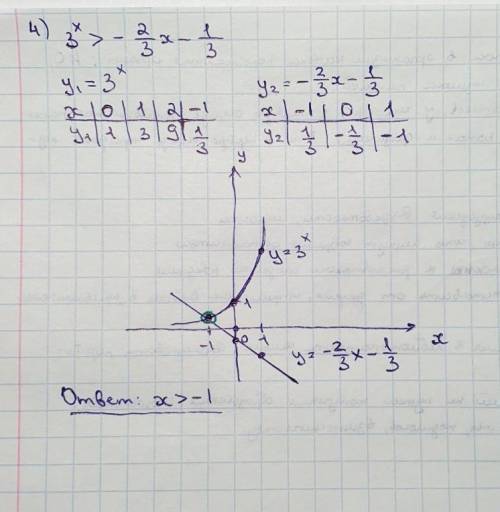 4) 3^x > - 2/3 x - 1/3
y₁ = 3^x
x | 0 | 1 | 2 | -1
y₁ | 1 | 3 | 9 | 1/3
y₂ = - 2/3 x - 1/3
x | -1 | 0 | 1
y₂ | 1/3 | - 1/3 | -1
y
y = 3^x
1
-1 0 1 x
y = - 2/3 x - 1/3
Ответ: x > -1